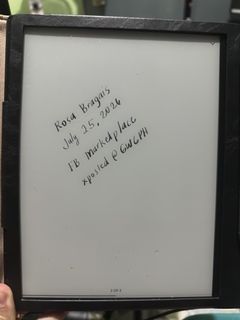 Rosa Bragais
July 25, 2026
FB Marketplace
xposted @ GWGPH
2 OF 2